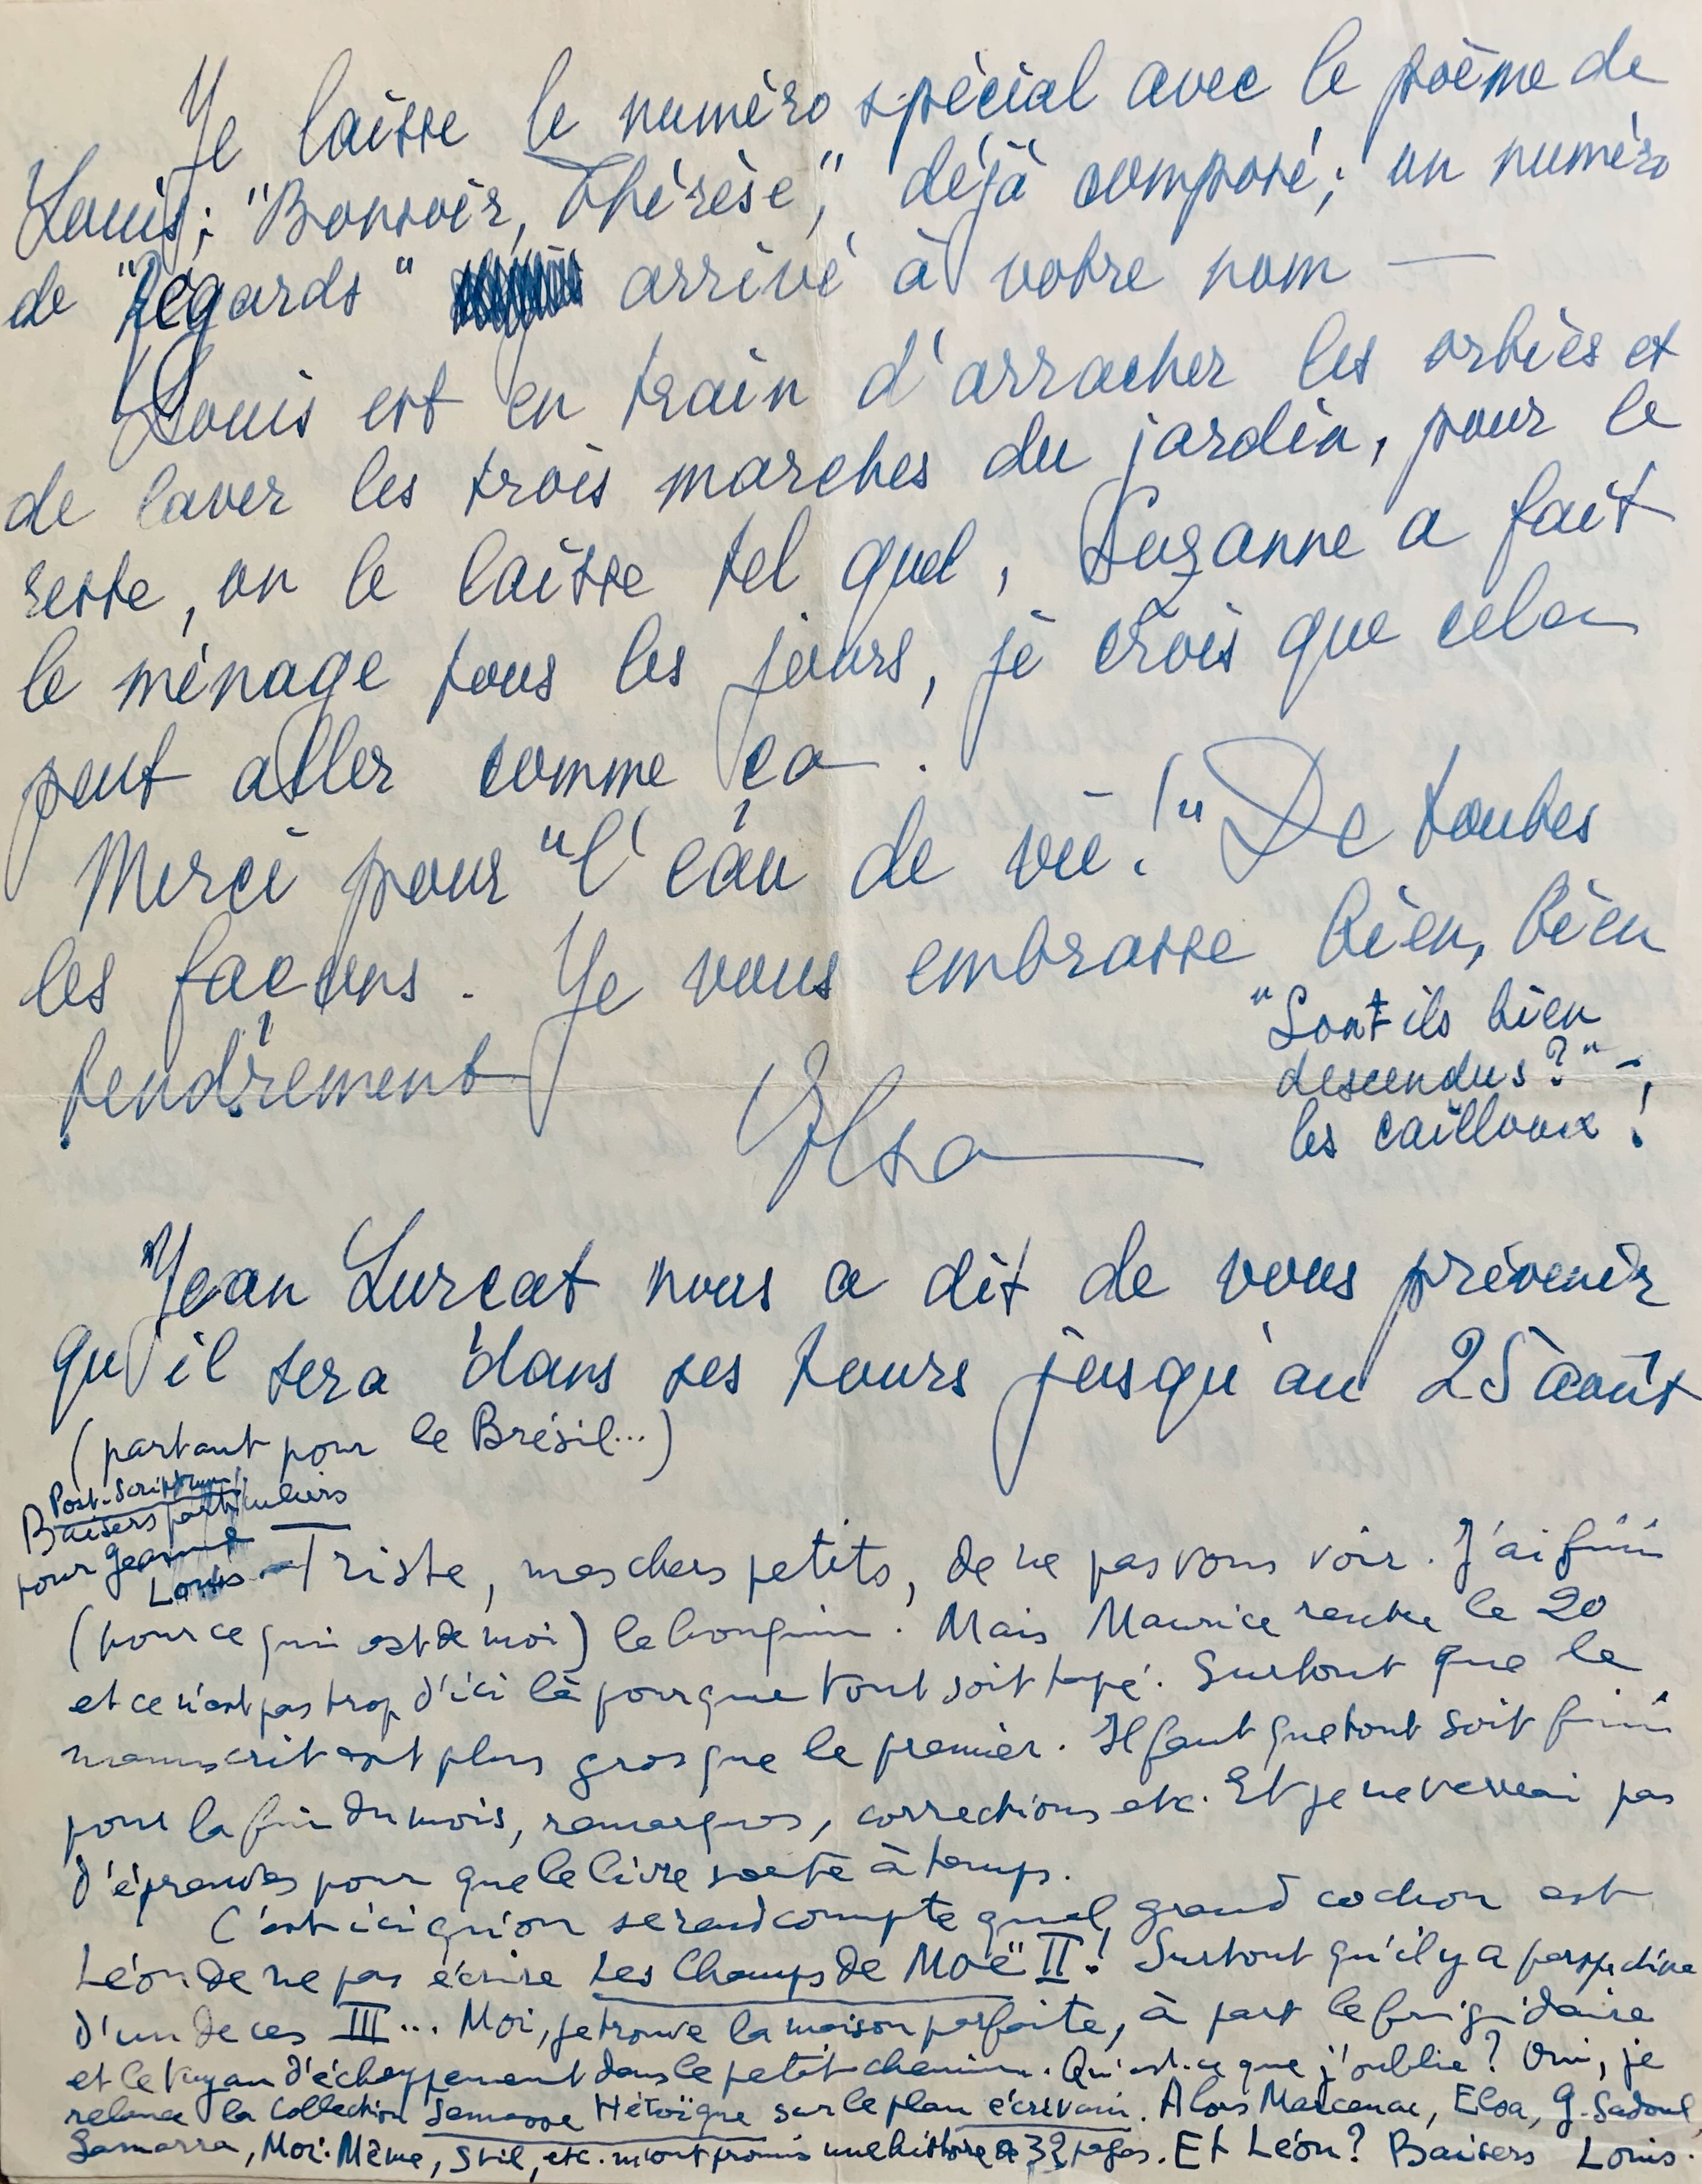 Je laisse le numéro spécial avec le poème de
Louis : "Bonsoir, Thérèse", déjà composé ; un numéro
de "Regards" arrivé à votre nom —
Louis est en train d'arracher les orties et
de laver les trois marches du jardin, pour le
reste, on le laisse tel quel, Suzanne a fait
le ménage tous les jours, je crois que cela
peut aller comme ça.
Merci pour "l'eau de vie !" De toutes
les façons. Je vous embrasse bien, bien
tendrement
Elsa
"Sont ils bien
descendus ?" –,
les cailloux !
Jean Lurçat nous a dit de vous prévenir
qu'il sera dans ses tours jusqu'au 25 août
(partant pour le Brésil...)
Post-Scriptum
Baisers particuliers
pour Jeanne
Louis
Triste, mes chers petits, de ne pas vous voir. J'ai fini
(pour ce qui est de moi) le bouquin. Mais Maurice rentre le 20
et ce n'est pas trop d'ici là pour que tout soit tapé. Surtout que le
manuscrit est plus gros que le premier. Il faut que tout soit fini
pour la fin du mois, remarques, corrections etc. Et je ne verrai pas
d'épreuves pour que le livre sorte à temps.
C'est ici qu'on se rend compte quel grand cochon est
Léon de ne pas écrire Les Champs de Moë II ! Surtout qu'il y a perspective
d'un de ces III... Moi, je trouve la maison parfaite, à part le frigidaire
et le tuyau d'échappement dans le petit chemin. Qu'est-ce que j'oublie ? Oui, je
relance la collection Jeunesse Héroïque sur le plan écrivain. Alors Marcenac, Elsa, G. Sadoul,
Gamarra, Moi-Même, Stil, etc. m'ont promis une histoire de 32 pages. Et Léon ? Baisers Louis.